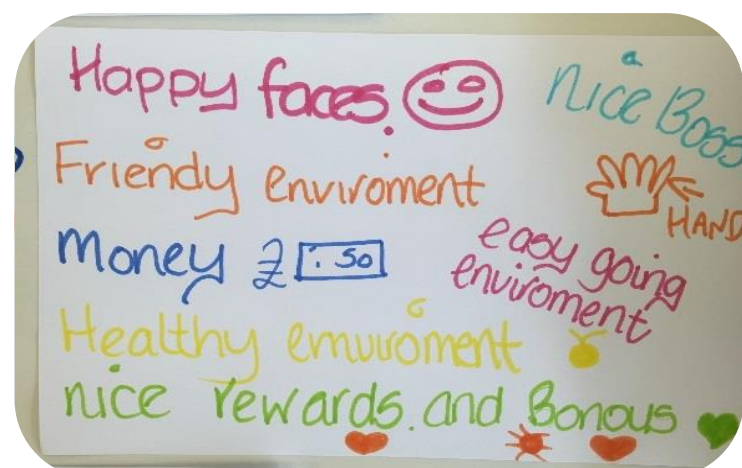 Happy faces.
nice Boss
Friendy enviroment
HAND
Money £ : 50
easy going
enviroment
Healthy emuuroment
nice rewards. and Bonous